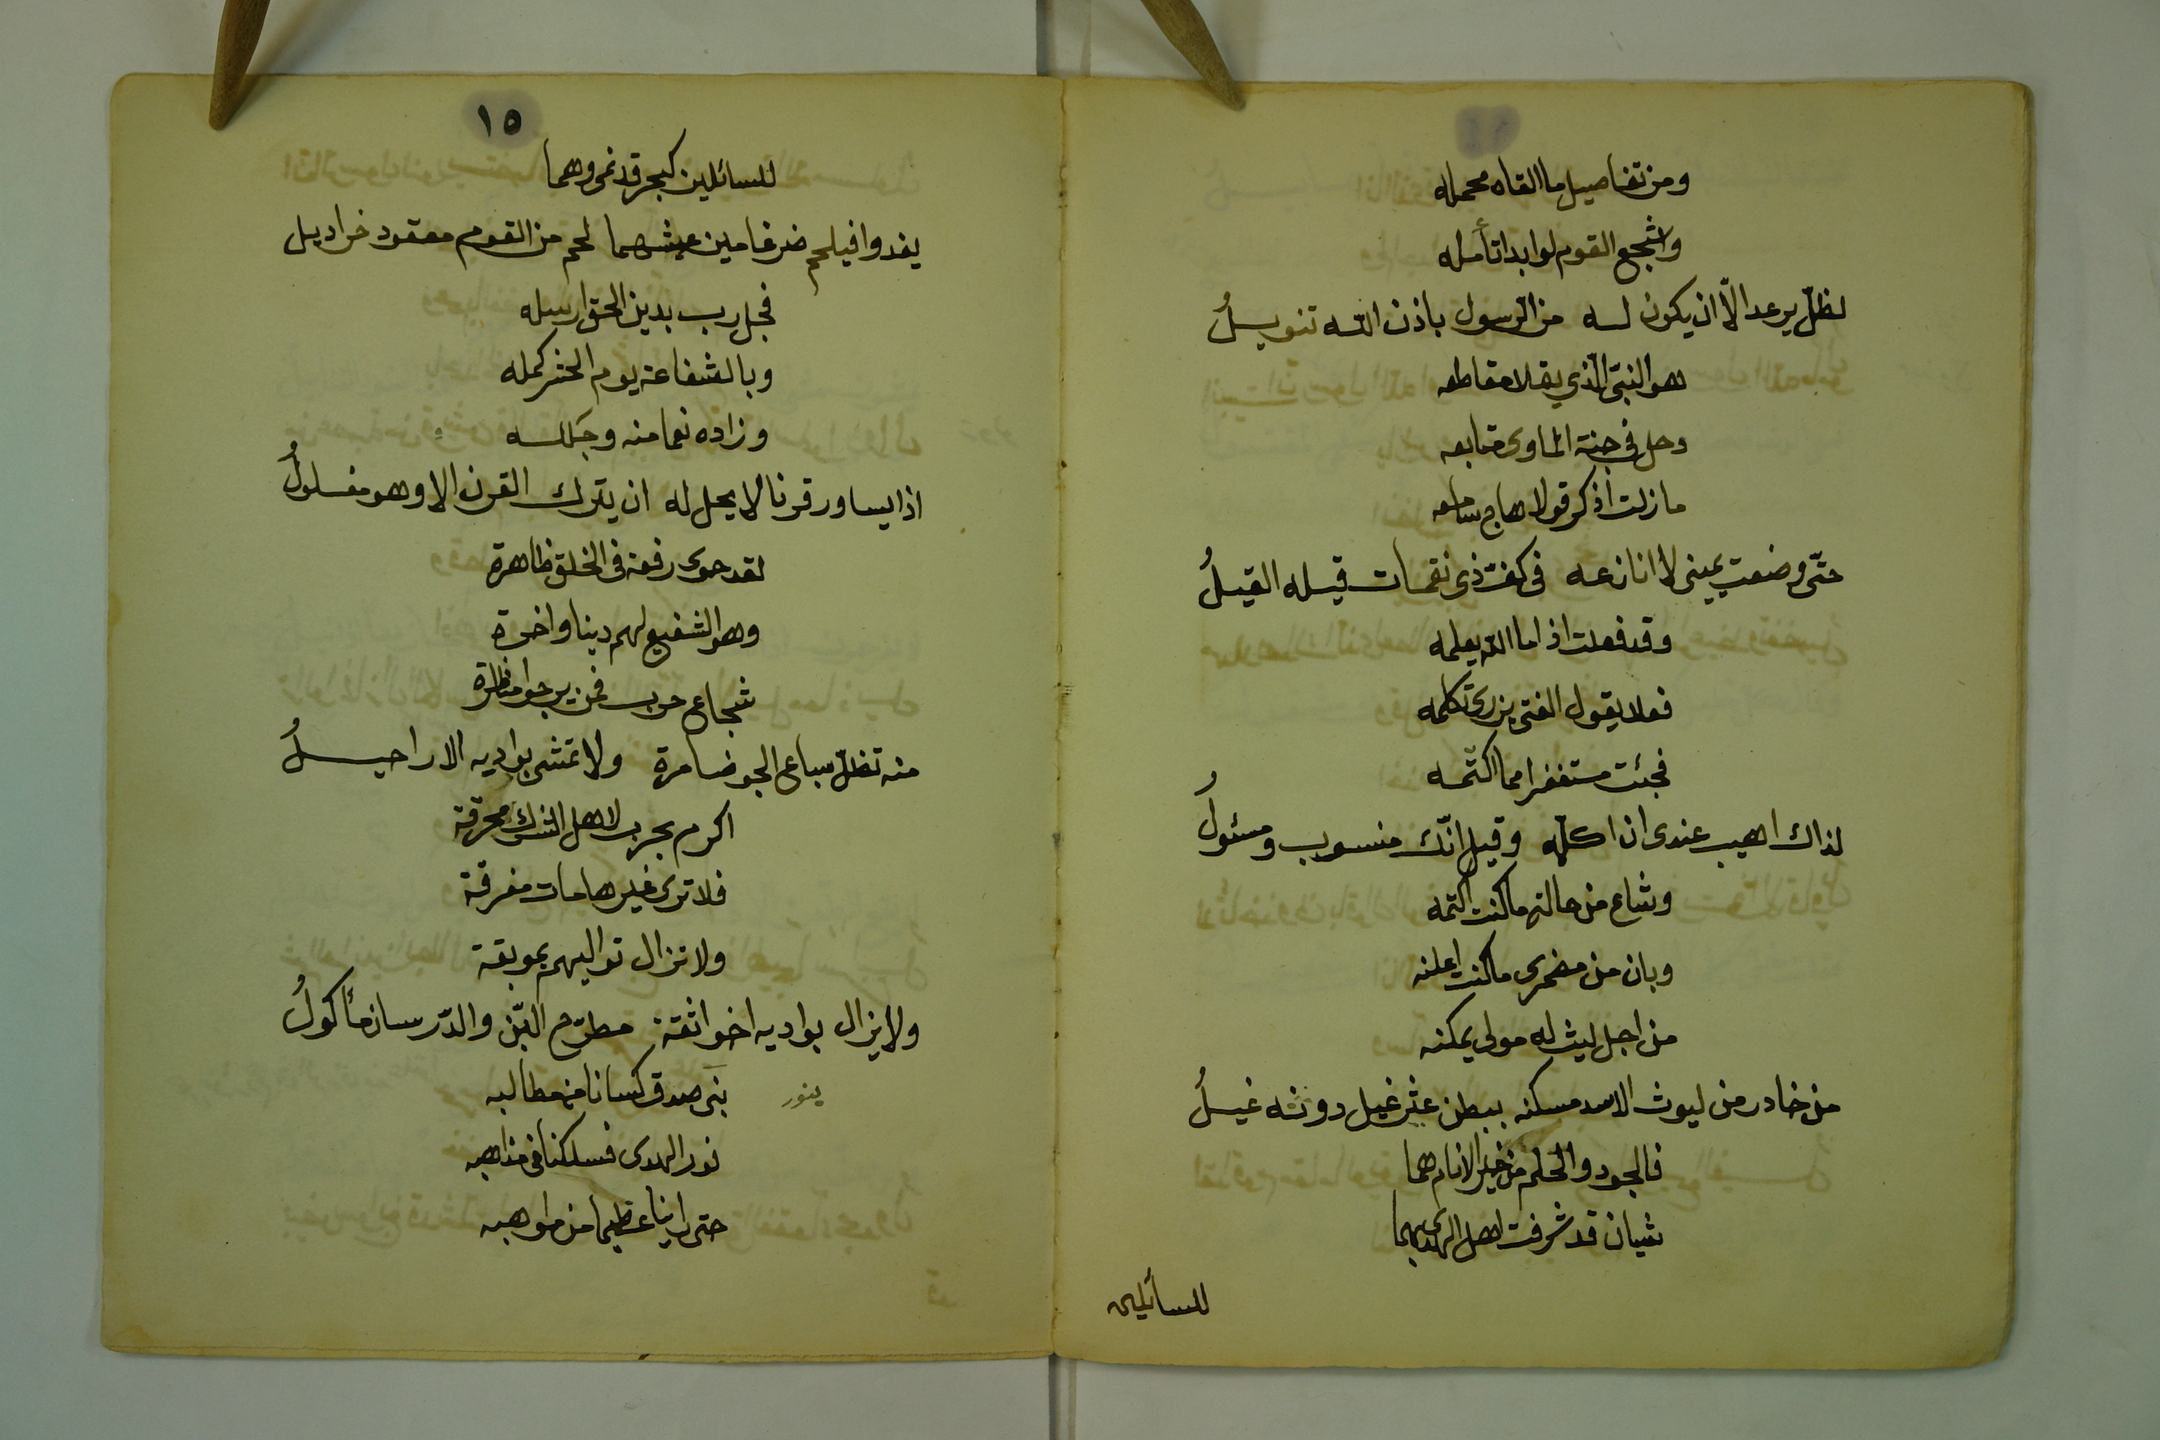 ومن تفاصيل ما القاه محمله
واشجع القوم لوابدا تأمله
لظلّ يرعد الّا ان يكون له من الرسول باذن الله تنويلُ
هو النبيّ الّذي يقلا مقاطعه
دحل في جنة الماوى متابعه
ما زلت اذكر قولا هاج سامعه
حتّى وضعت يمينى لا انازعه فى كفت ذى نقمات قيله القيلُ
وقد فعلت اذا ما الله يعلمه
فعلا يقول الفتى يزرى تكلمه
فجئت مستغفرا مما اكتّمه
لذاك اهيب عندى ان اكلّمه وقيل انّك منسوب ومسئولُ
وشاع من حالتى ما كنت اكتمه
وبان من مضمرى ما كنت اعلنه
من اجل ليث له مولى يمكنه
من خادر من ليوث الاسد مسكنه ببطن عثر غيل دونه غيلُ
فالجود والحلم من خير الانام هما
شيان قد شرفت اهل الهدى بهما
للسائلين
١٥
للسائلين كبحر قد نمى وهما
يغدوا فيلحم ضرغامين عيشهما لحم من القوم معقود خراديل
فجل رب بدين الحق ارسله
وبالشفاعة يوم الحشر كمله
وزاده نعما منه وجَلله
اذا يساور قرنا لا يحل له ان يترك القرن الا وهو مغلولُ
لقد حوى رفعة فى الخلق ظاهرة
وهو الشفيع لهم دينا واخرة
شجاع حرب فمن يرجوا مناظرة
منه تظلّ سباع الجو ضامرة ولا تمشى بواديه الاراحيلُ
اكرم بحرب لاهل الشرك محرقة
فلا ترى غير هامات مفرقة
ولا تزال تواليهم بموبقة
ولا يزال بواديه اخو اثقة مطرّح البّز والدّرسان مأكولُ
بنى صدق كسانا من مطالبه
ينور
نور الهدى فسلكنا فى مذاهبه
حتى راينا عظيما من مواهبه